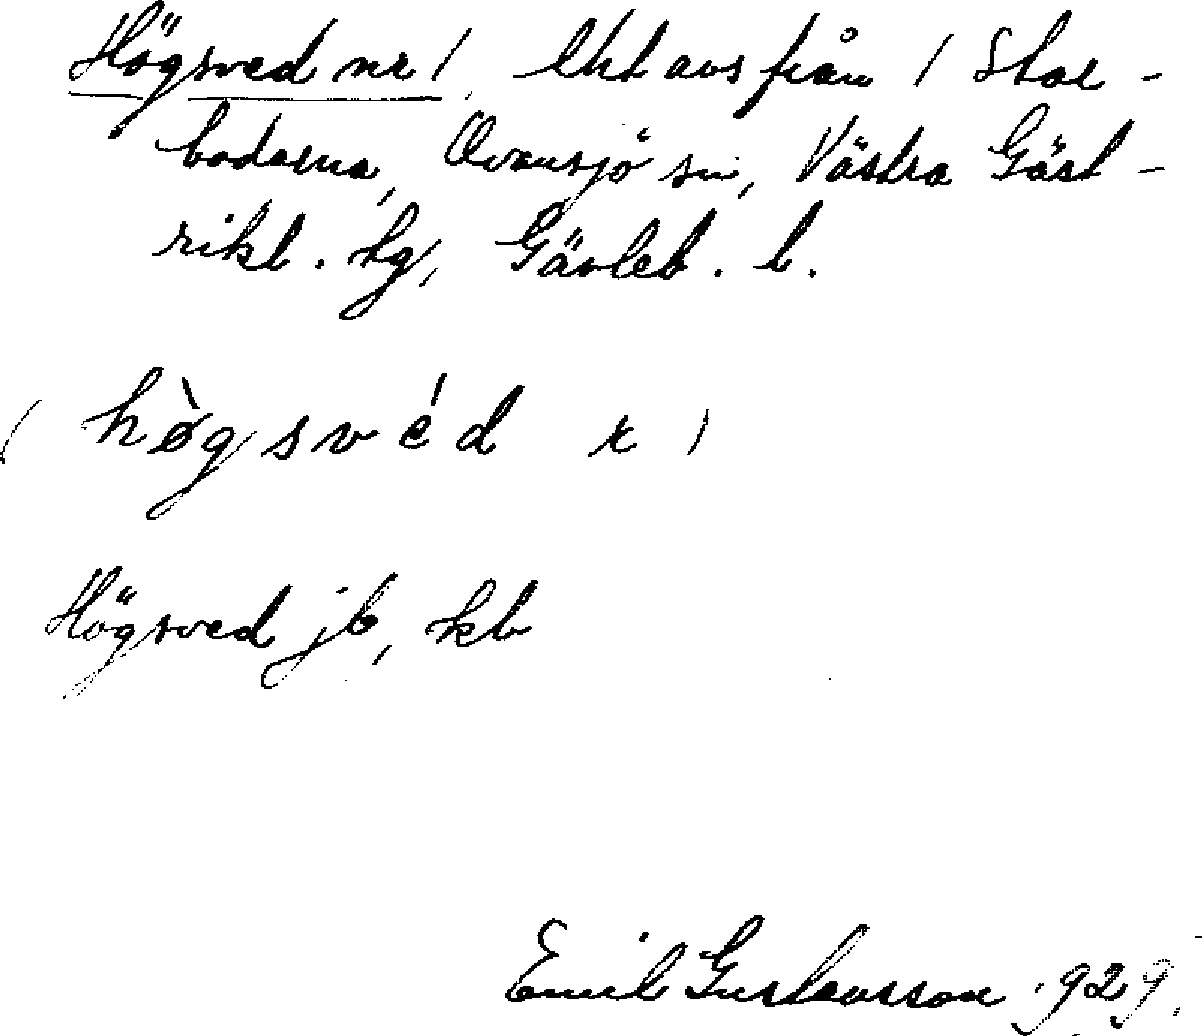 Högsved nr 1, lht avs från 1 Stor-
bodarna, Ovansjö sn, Västra Gäst-
rikl. hg, Gävleb. l.
( hø̀gsvéd r )
Högsved jb, kb
Emil Gustavsson 1929.